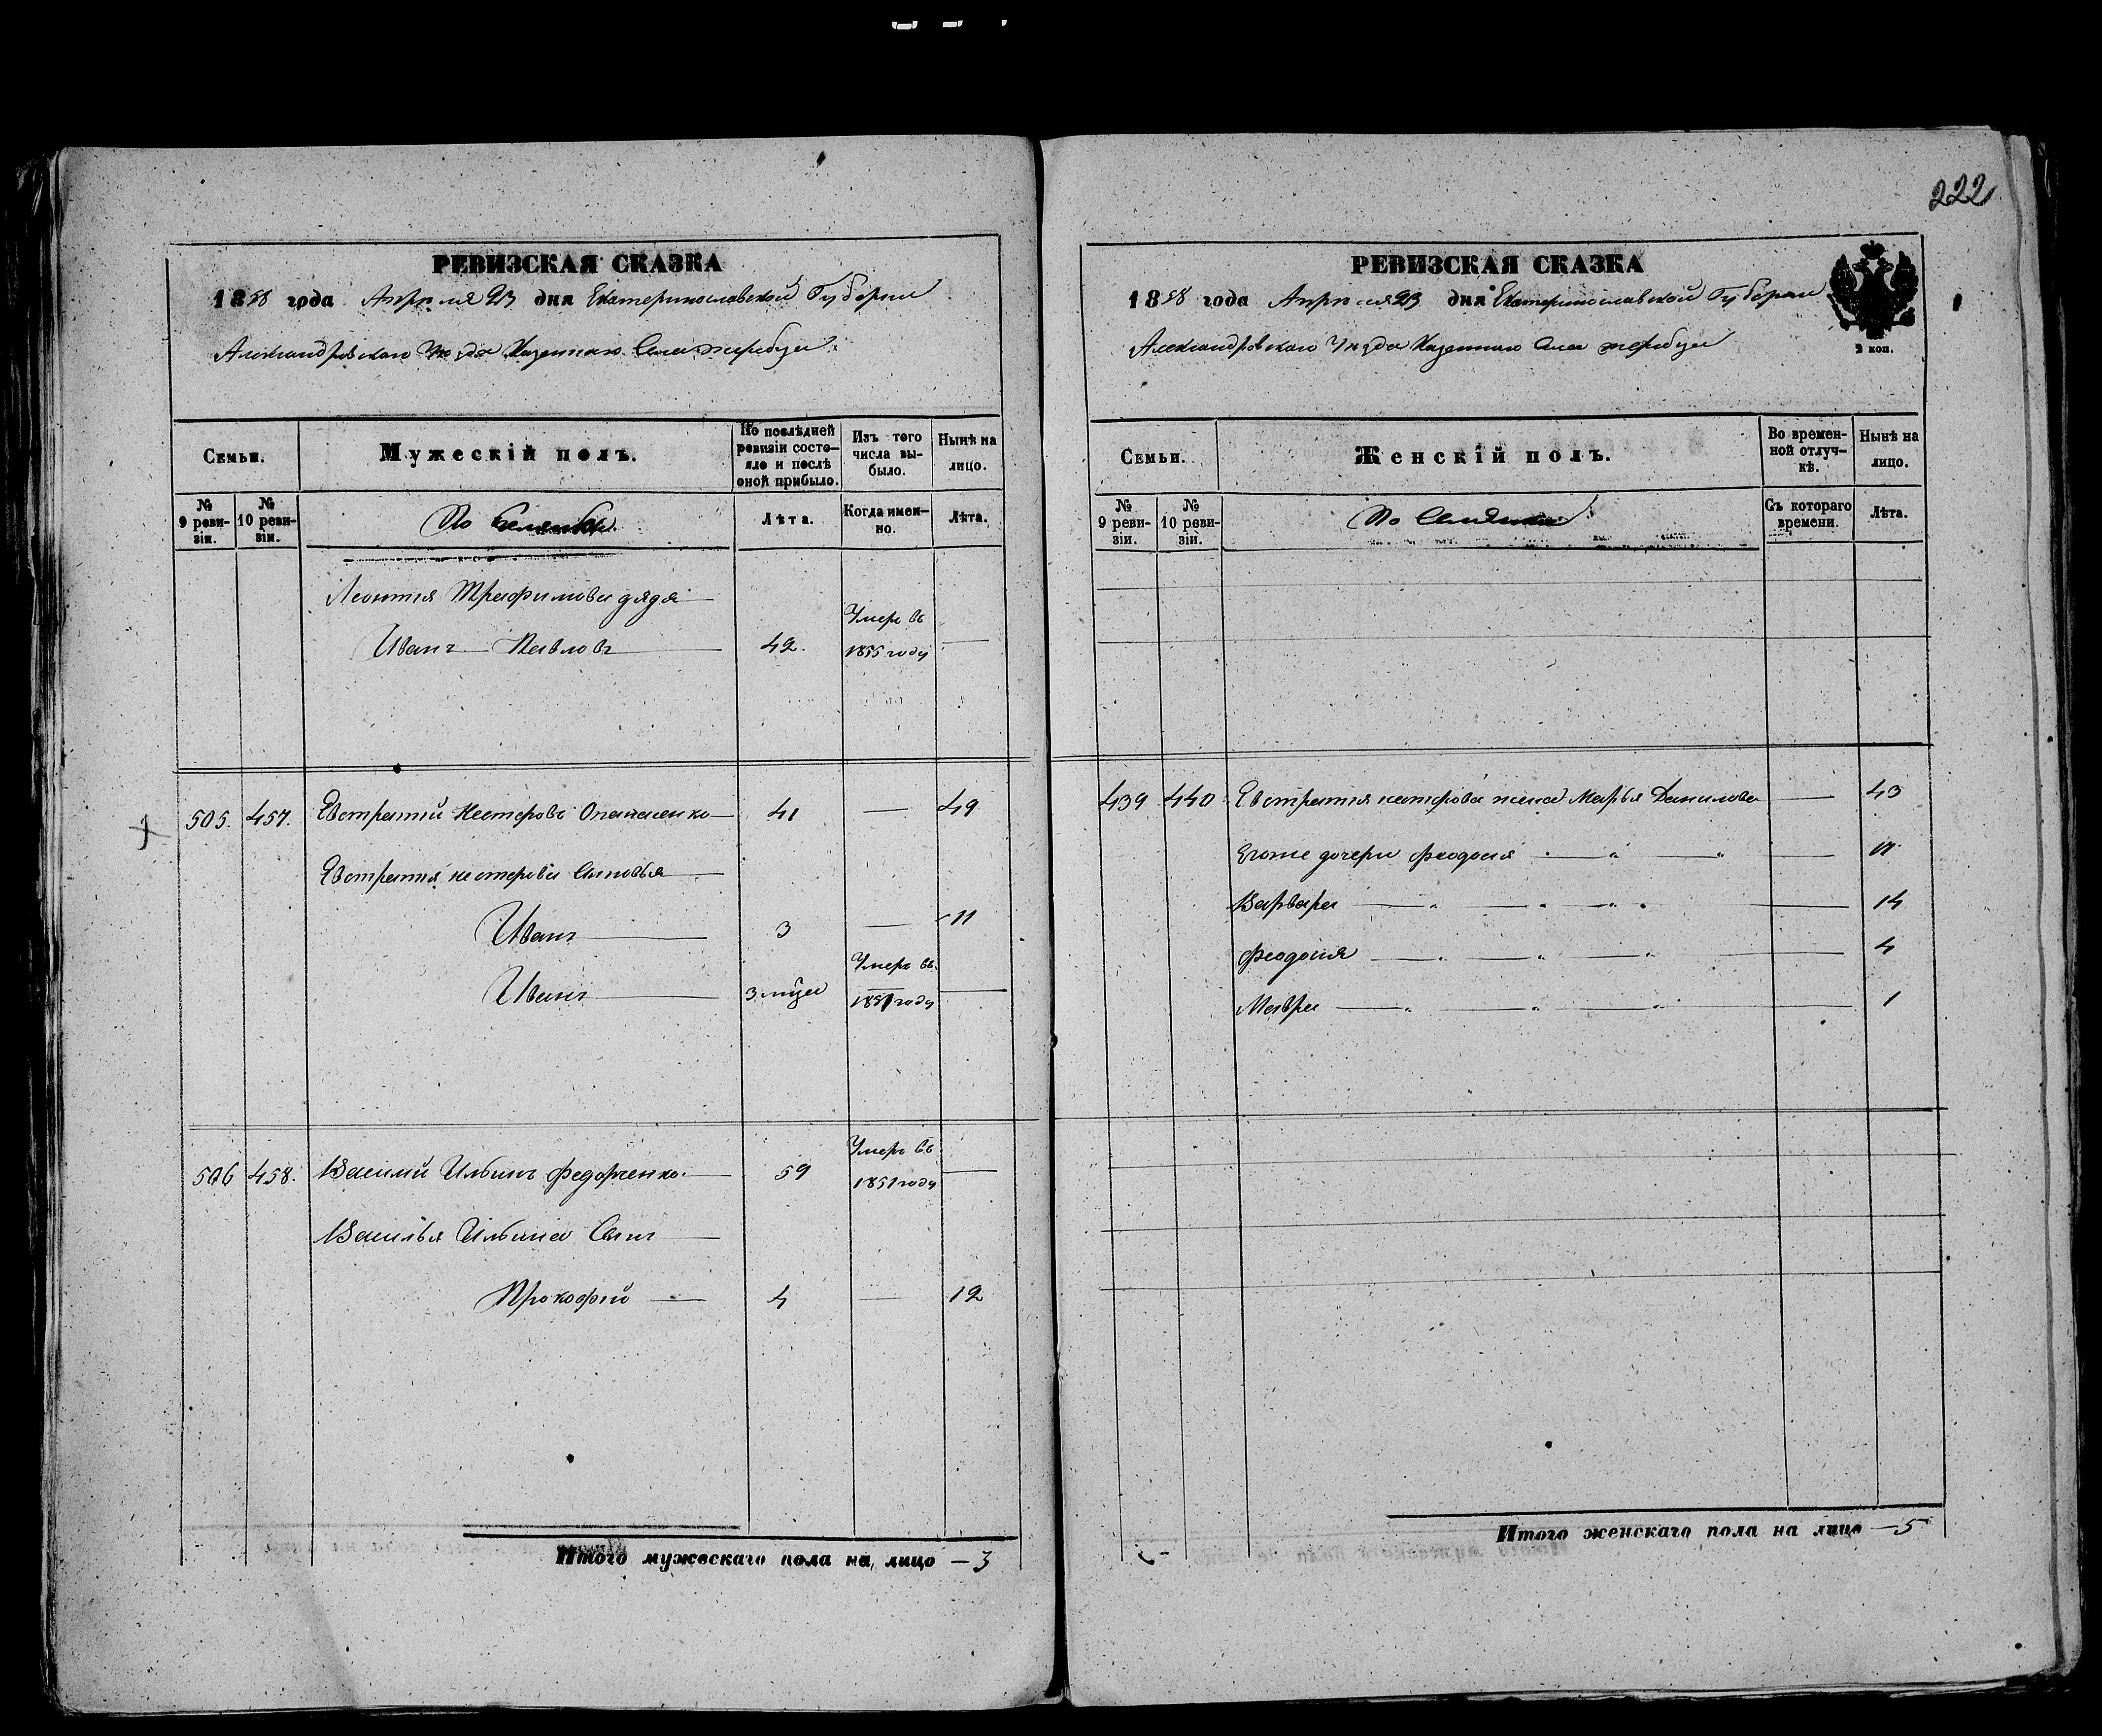 222
РЕВИЗСКАЯ СКАЗКА
1858 года Апреля 23 дня Екатеринославской Губернии
Александровскаго Уезда Казеннаго Села жеребца
Семьи.
Мужескій полъ.
По послѣдней ревизіи состояло и послѣ оной прибыло.
Изъ того числа выбыло.
Нынѣ на лицо.
№ 9 ревизіи.
№ 10 ревизіи.
По
Лѣта.
Когда именно.
Лѣта.
Леонтия Трафимова дядя
Иванъ Павловъ 42. Умеръ въ 1855 году
505. 457. Евстратий Нестеровъ Опанасенко 41 — 49
Евстратия нестерова Сыновья
Иванъ 3 — 11
Иванъ 3 мца Умеръ въ 1851 году
506 458. Василий Ильинъ Федорченко 59 Умеръ въ 1851 году
Василья Ильина Сынъ
Прокофий 4 — 12
Итого мужескаго пола на лицо — 3
РЕВИЗСКАЯ СКАЗКА
1858 года Апреля 23 дня Екатеринославской Губернии
Александровскаго Уезда Казеннаго Села жеребца
2 коп.
Семьи.
Женскій полъ.
Во временной отлучкѣ.
Нынѣ на лицо.
№ 9 ревизіи.
№ 10 ревизіи.
По
Съ котораго времени.
Лѣта.
439 440 Евстратия нестерова жена Марья Данилова — 43
Егоже дочери Феодосия
Варвара — 14
Феодосия — 4
Мавра — 1
Итого женскаго пола на лицо — 5